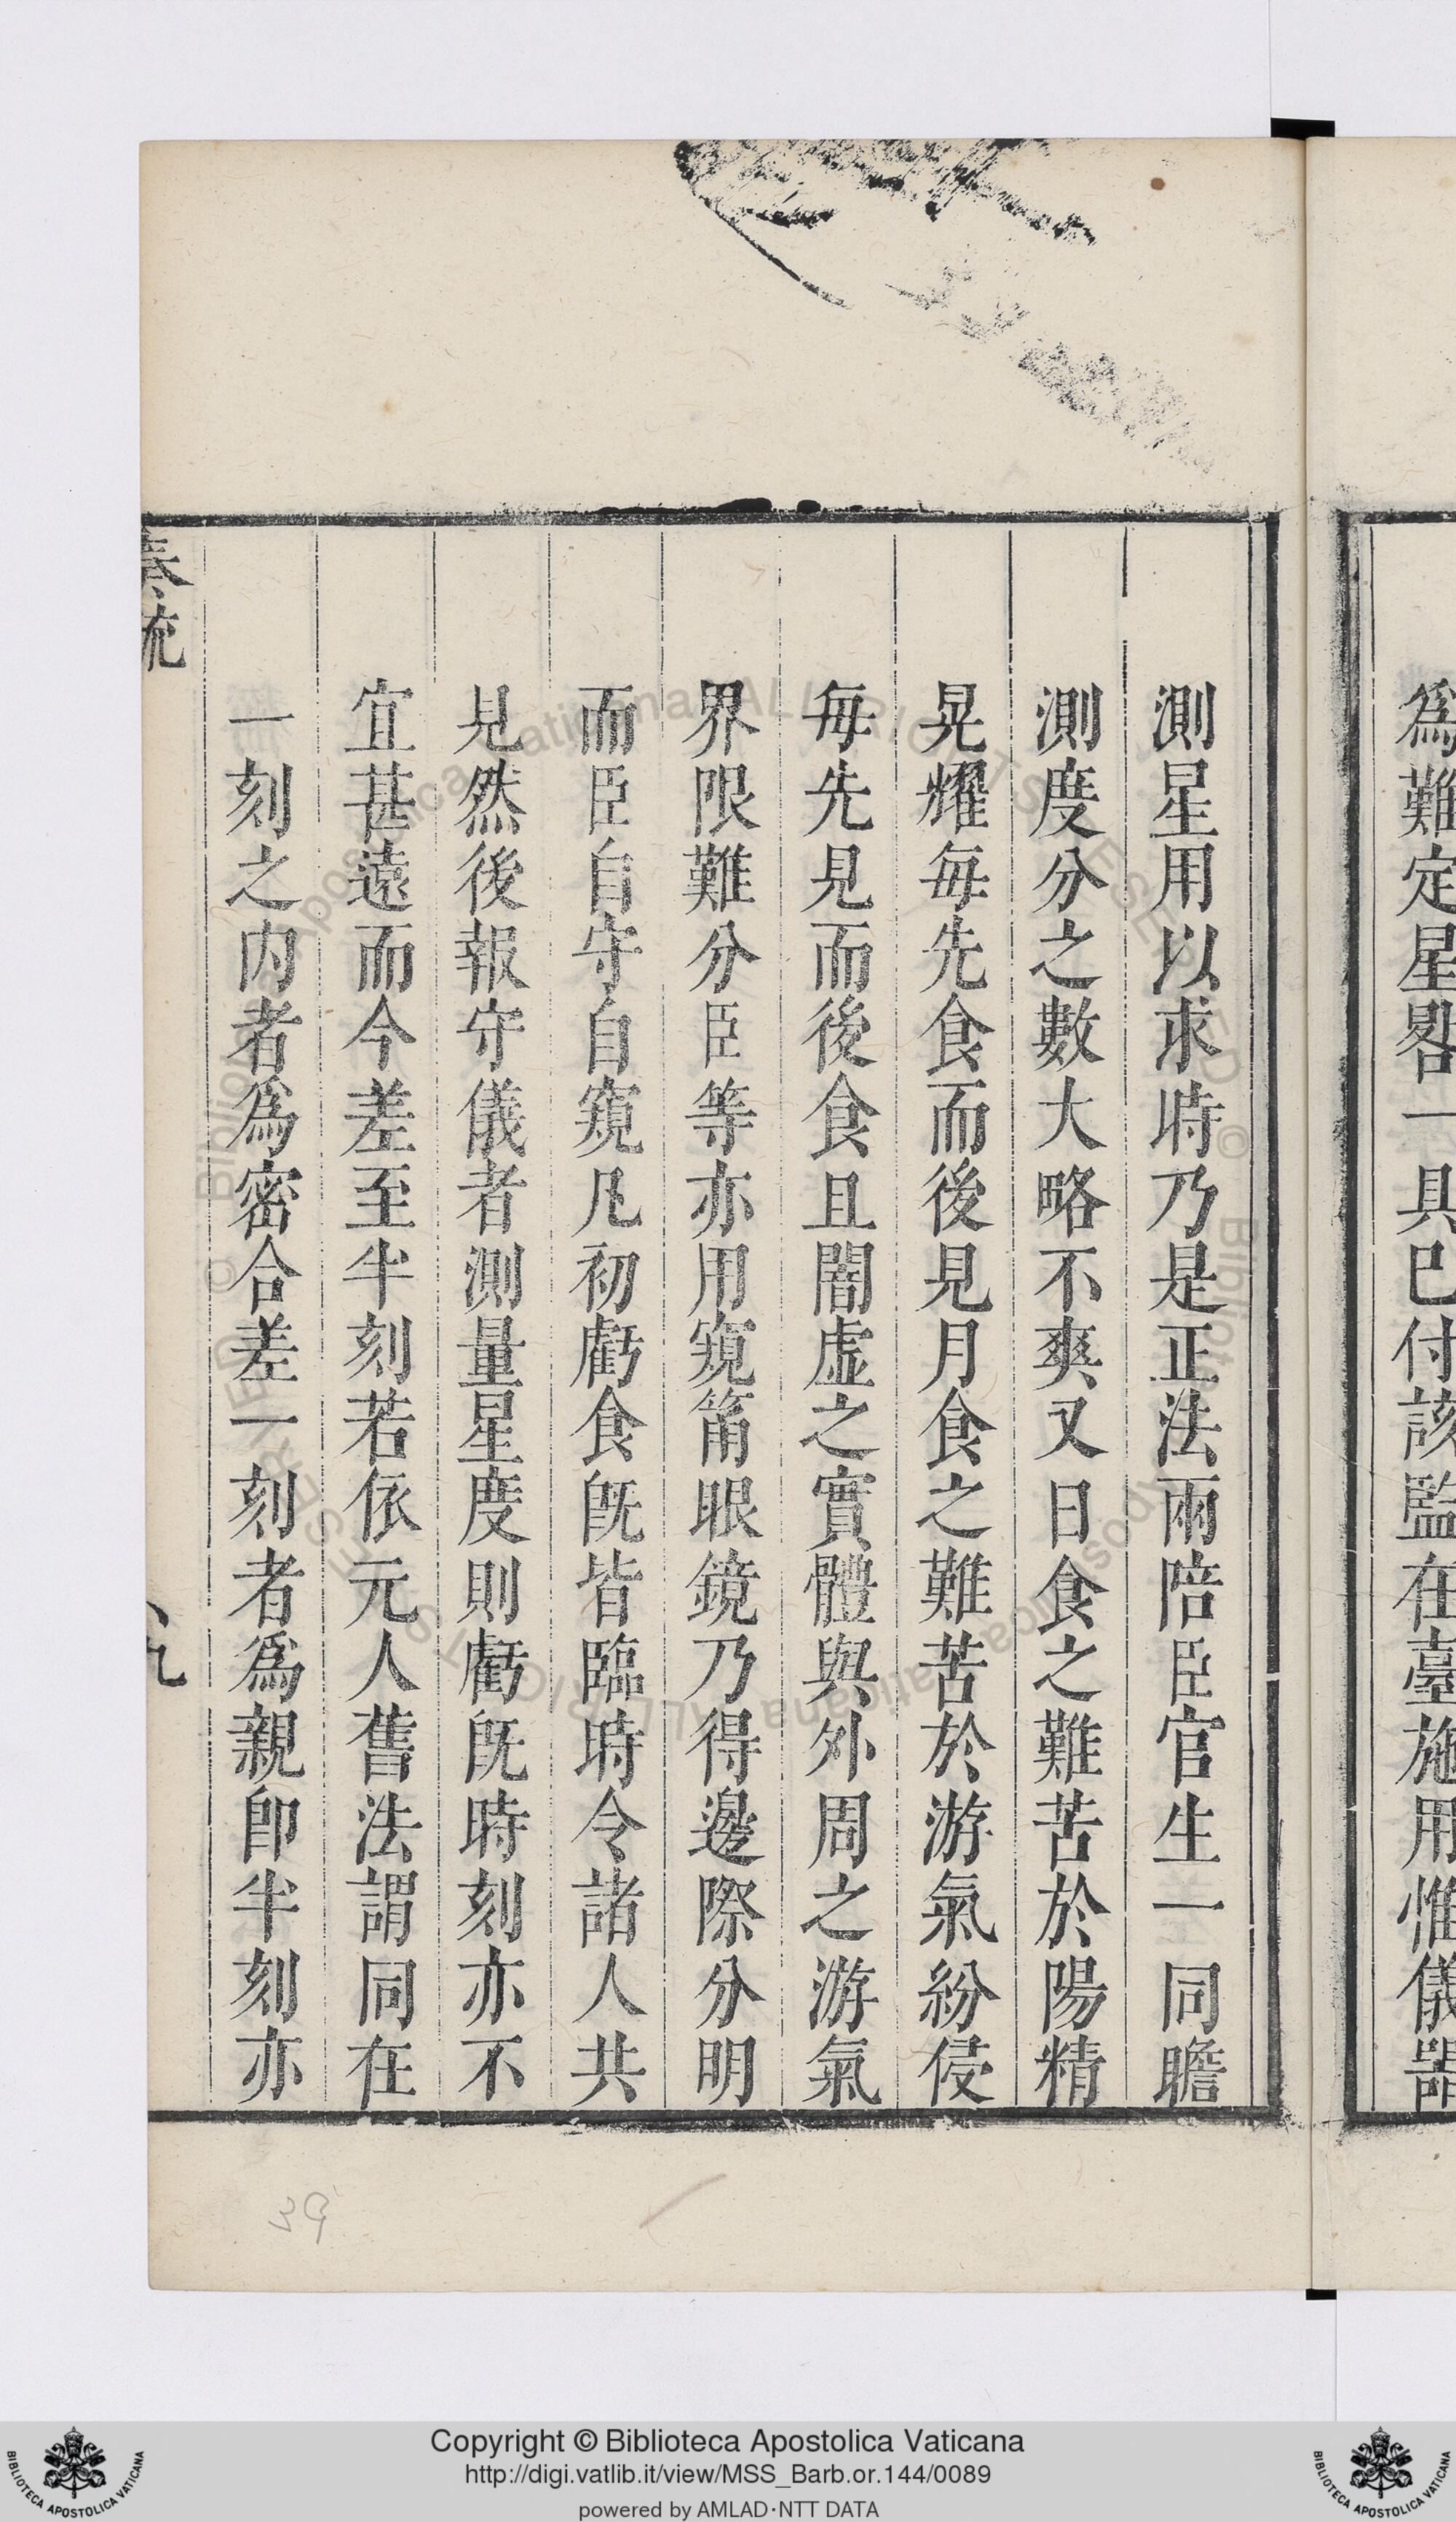 爲難定星晷一具已付該監在臺施用惟儀器
測星用以求時乃是正法兩陪臣官生一同瞻
測度分之數大略不爽又日食之難苦於陽精
晃耀每先食而後見月食之難苦於游氣紛侵
每先見而後食且闇虛之實體與外周之游氣
界限難分臣等亦用窺筩眼鏡乃得邊際分明
而臣自守自窺凡初虧食旣皆臨時令諸人共
見然後報守儀者測量星度則虧旣時刻亦不
宜甚遠而今差至半刻若依元人舊法謂同在
一刻之內者爲密合差一刻者爲親卽半刻亦
奏疏
九
39
Copyright © Biblioteca Apostolica Vaticana
http://digi.vatlib.it/view/MSS_Barb.or.144/0089
powered by AMLAD·NTT DATA
BIBLIOTECA APOSTOLICA VATICANA
BIBLIOTECA APOSTOLICA VATICANA